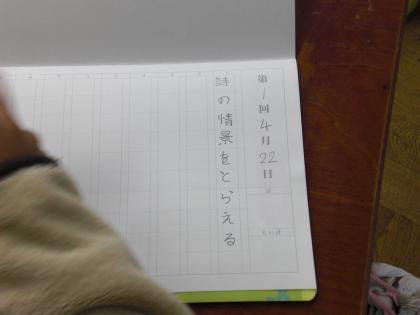 第1回4月22日
詩の情景をとらえる